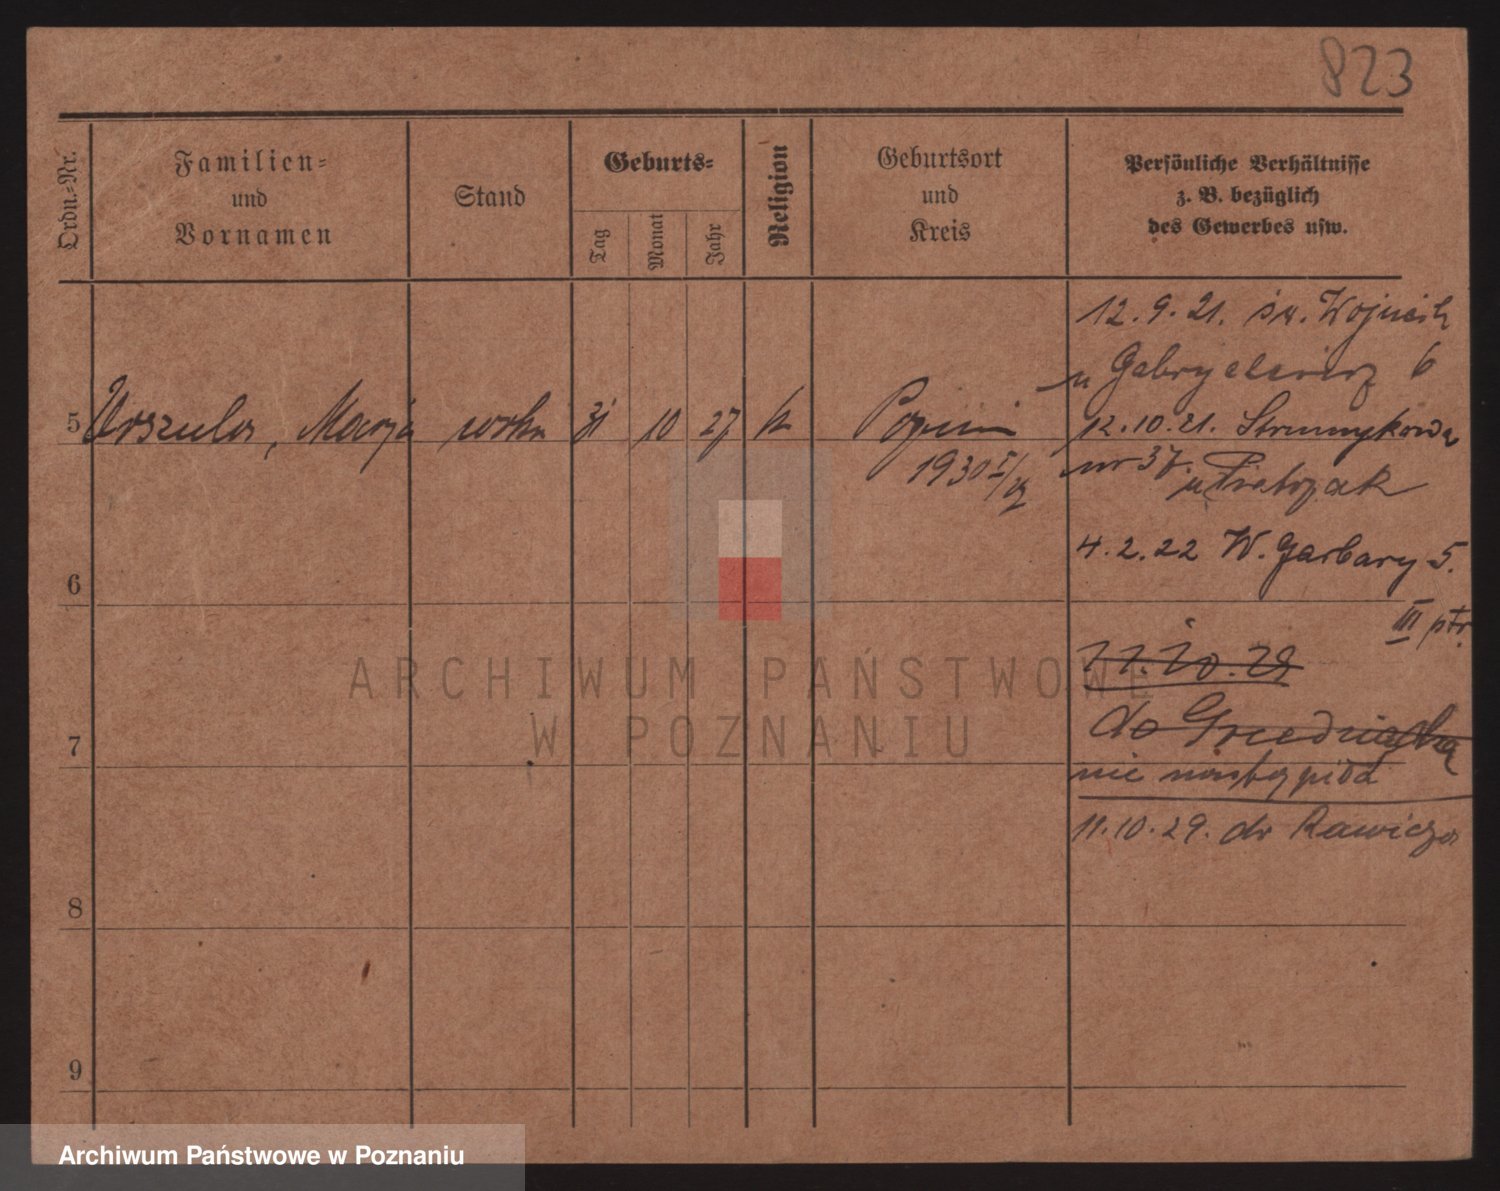 823
Ordn.=Nr.
Familien=
und
Vornamen
Stand
Geburts=
Tag
Monat
Jahr
Religion
Geburtsort
und
Kreis
Persönliche Verhältnisse
z. B. bezüglich
des Gewerbes usw.
12.9.21. św. Wojciech
u Gabryelewicz 6
5 Urszula, Marja 31 10 27 k
12.10.21. Strumykowa
1930
nr 37
u Pietrzak
4.2.22 W. Garbary 5.
6
III ptr.
11.10.29
do Grudziądza
7
nie
11.10.29. do Rawicza
8
9
ARCHIWUM PAŃSTWOWE
W POZNANIU
Archiwum Państwowe w Poznaniu